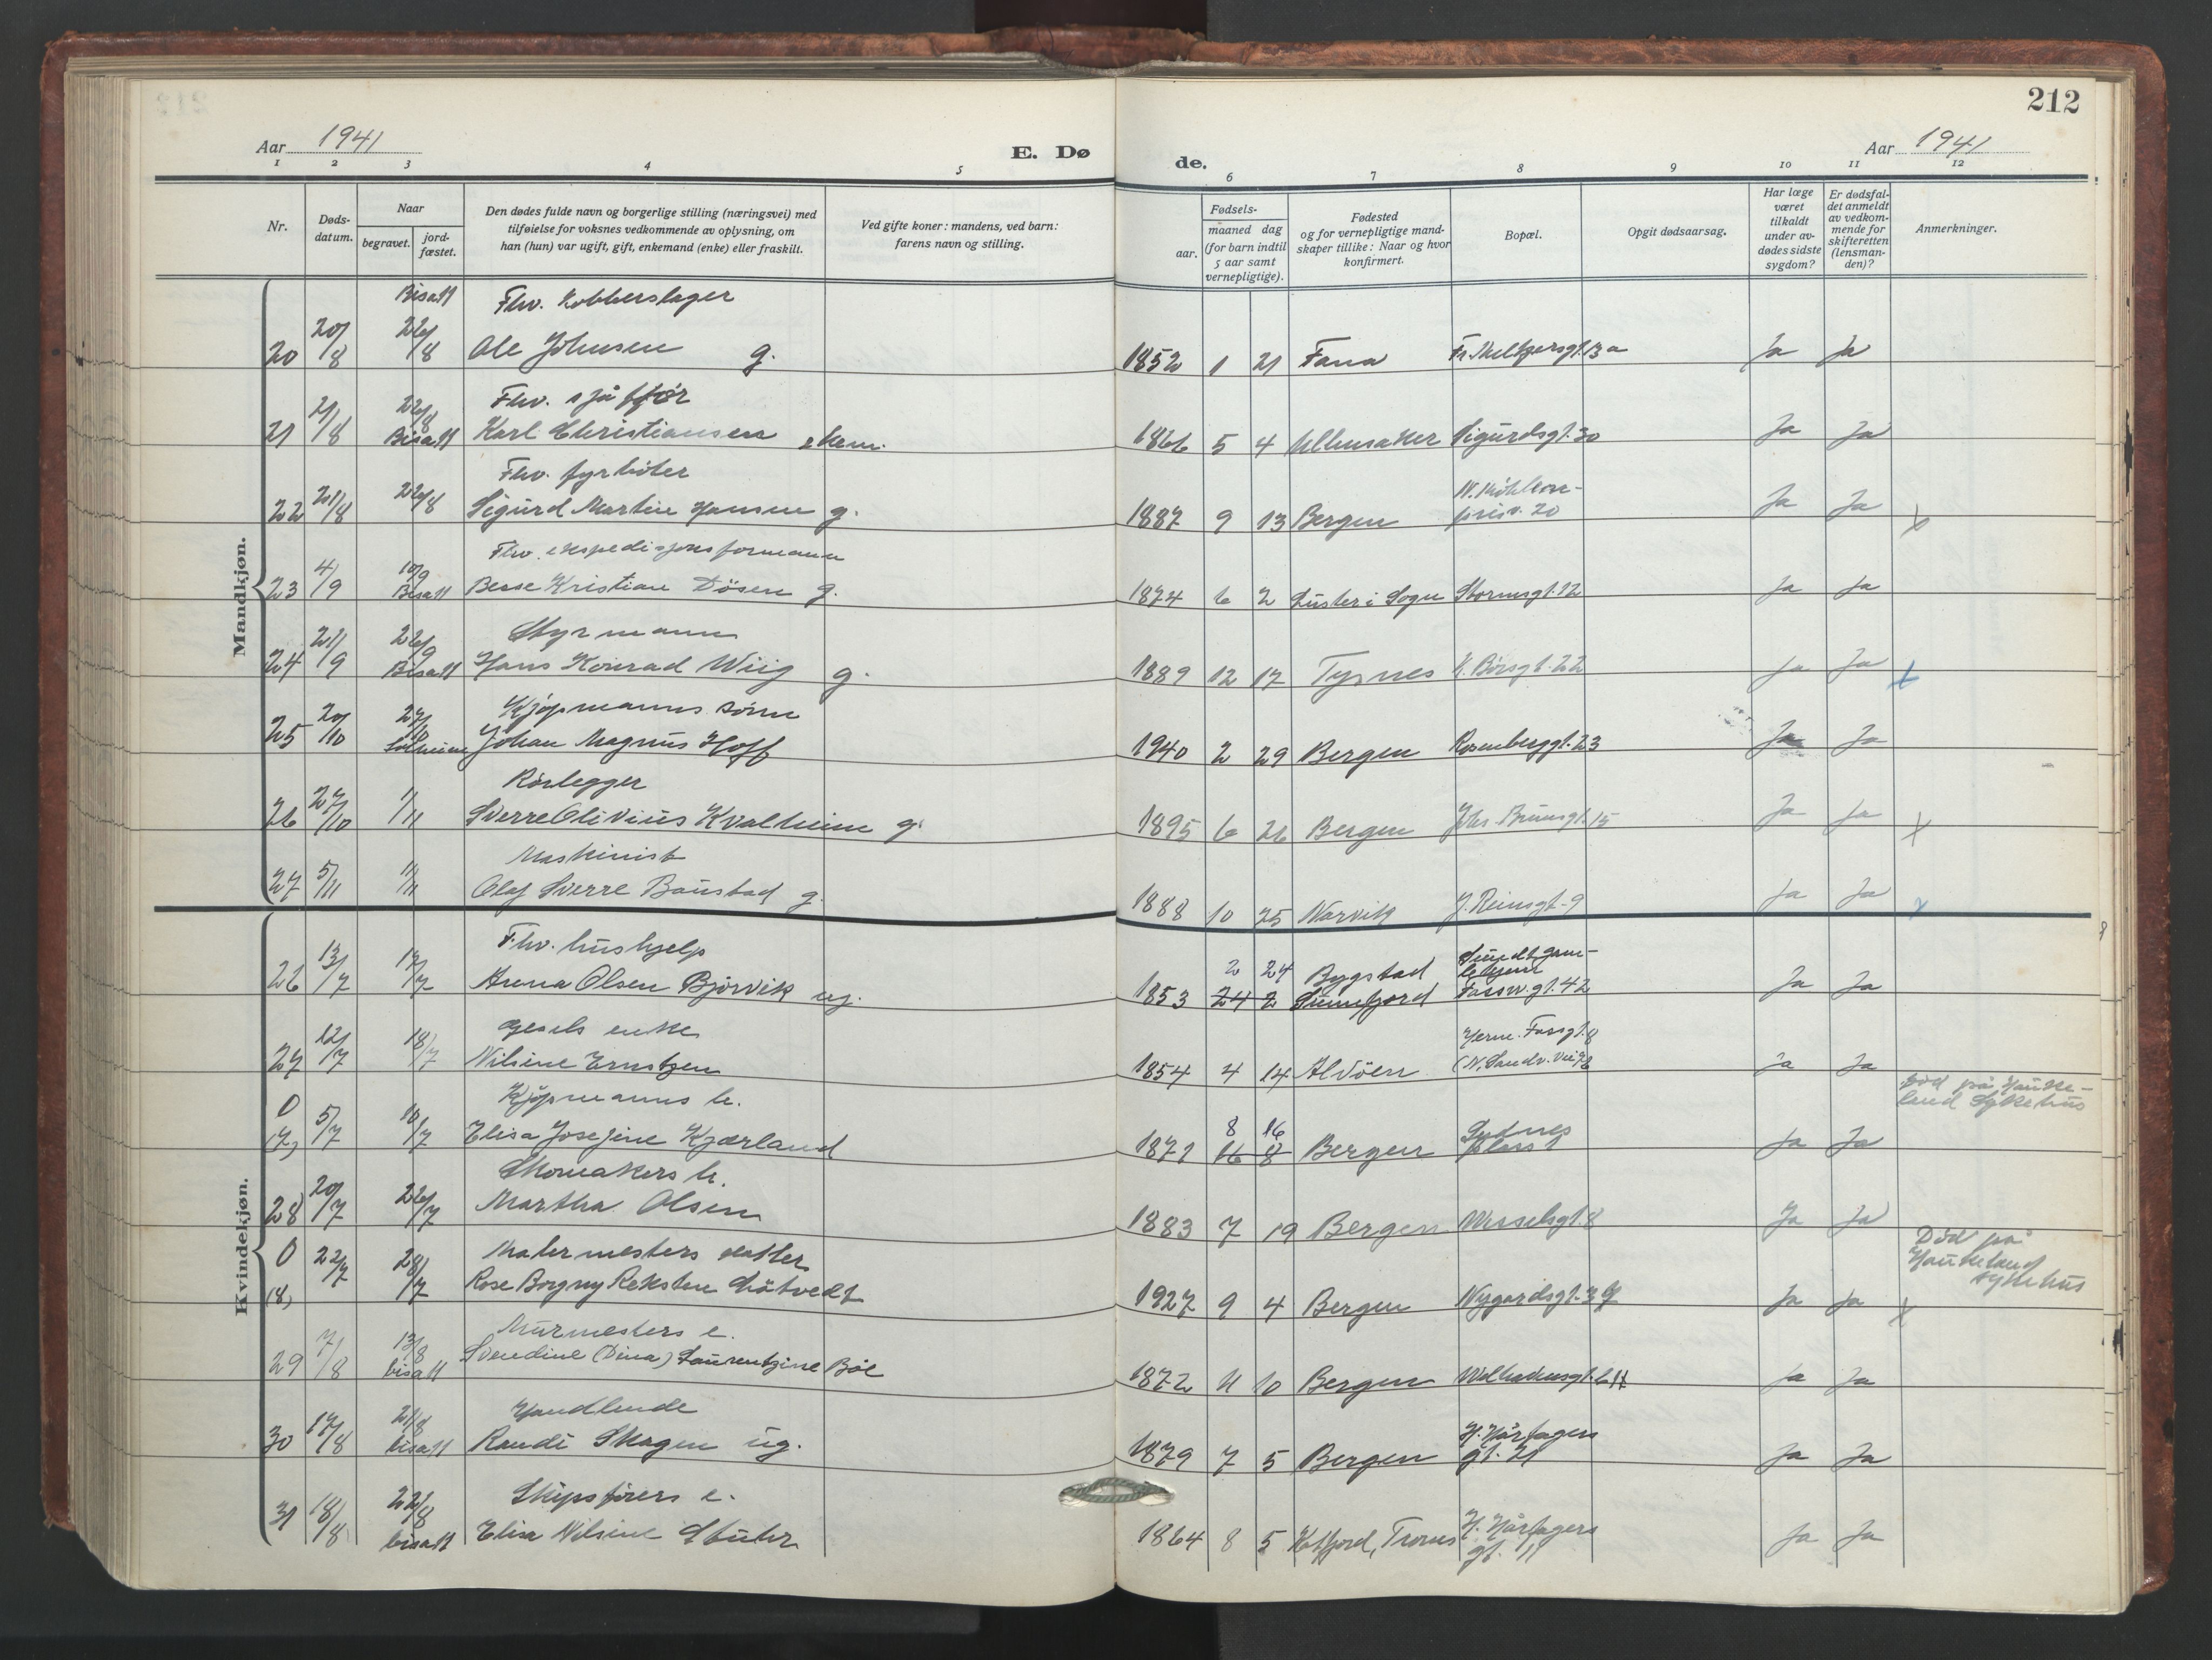 212
Aar 1941
E. Dø
de.
Aar 1941
1 2 3 4 5 6 7 8 9 10 11 12
Nr.
Døds-
datum.
Naar
begravet.
jord-
fæstet.
Den dødes fulde navn og borgerlige stilling (næringsvei) med
tilføielse for voksnes vedkommende av oplysning, om
han (hun) var ugift, gift, enkemand (enke) eller fraskilt.
Ved gifte koner: mandens, ved barn:
farens navn og stilling.
Fødsels-
aar.
maaned dag
(for barn indtil
5 aar samt
vernepligtige).
Fødested
og for vernepligtige mand-
skaper tillike: Naar og hvor
konfirmert.
Bopæl.
Opgit dødsaarsag.
Har læge
været
tilkaldt
under av-
dødes sidste
sygdom?
Er dødsfal-
det anmeldt
av vedkom-
mende for
skifteretten
(lensman-
den)?
Anmerkninger.
Mandkjøn.
Bisatt Fhv. kobberslager
20 20/8 22/8 Ole Johnsen g. 1852 1 21 Fana Fr. Meltzersgt. 13a Ja Ja
Fhv. sjåffør
21 21/8 22/8 Bisatt Karl Christiansen ekem. 1866 5 4 Ullensaker Sigurdsgt. 30 Ja Ja
Fhv. fyrbøter
22 21/8 22/8 Sigurd Martin Hansen g. 1887 9 13 Bergen pris v. 20 Ja Ja x
Fhv. ekspedisjonsformann
23 4/9 10/9 Bisatt Kristian Døsen g. 1874 6 2 Luster i Sogn Stormsgt. 12 Ja Ja
Styrmann
24 21/9 22/9 Bisatt Hans Konrad Wiig g. 1889 12 17 Tysnes 22 Ja Ja x
Kjøpmanns sønn
25 20/10 27/10 Solheim Johan Magnus Hoff 1940 2 29 Bergen Rosenberggt. 23 Ja Ja
Rørlegger
26 27/10 1/11 Sverre Olivius Kvalheim g. 1895 6 26 Bergen Joh. Brunsgt. 15 Ja Ja x
Maskinist
27 5/11 11/11 Olaf Sverre Baustad g. 1888 10 25 Narvik J. Reinsgt. 9 Ja Ja x
Kvindekjøn.
Fhv. hushjelp
26 13/7 17/7 Anna Olsen Bjørvik ug. 1853 2 24 24 2 Bygstad Sunnfjord 42 Ja Ja
enke
27 12/7 18/7 Nilsine Erntzen 1854 4 14 Alvøen Ja Ja
Kjøpmanns h. Død på Hauke-
land Sykehus
0 (7) 5/7 10/7 Elisa Josefine Kjærland 1871 8 16 16 8 Bergen Sydnes
plass 1 Ja Ja
Skomakers h.
28 20/7 26/7 Martha Olsen 1883 7 19 Bergen Wesselsgt. 8 Ja Ja
Malermesters datter Død på
Haukeland
sykehus
0 (8) 22/7 28/7 Rose Borgny Reksten Løtvedt 1927 9 4 Bergen Nygardsgt. Ja Ja x
Murmesters e.
29 7/8 13/8 bisatt Svendine (Dina) Laurentzine Bøe 1872 11 10 Bergen Ja Ja
Handlende
30 17/8 21/8 bisatt Randi Skagen ug. 1879 7 5 Bergen H. Hårfagers
gt. 21 Ja Ja
Skipsførers e.
31 18/8 22/8 bisatt Elisa Nilsine 1864 8 5 Troms H. Hårfagers
gt. 11 Ja Ja